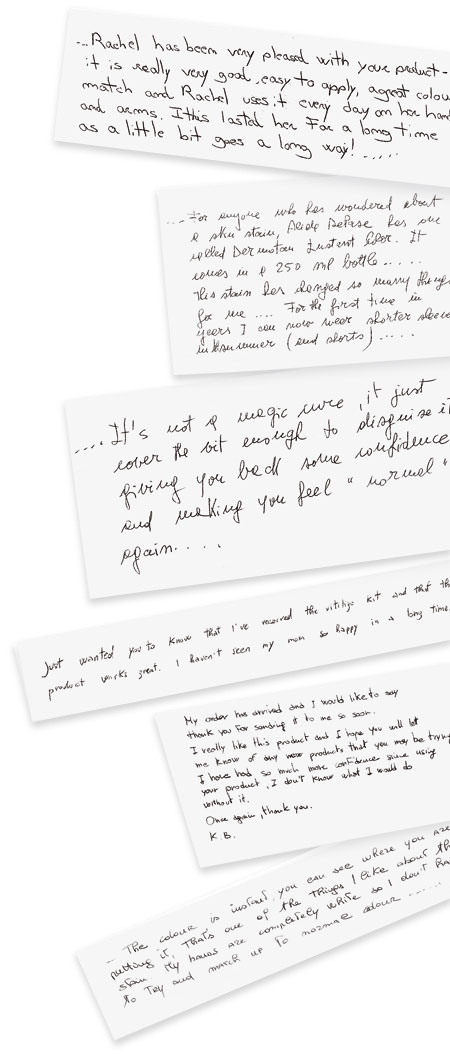 ...Rachel has been very pleased with your product-
it is really very good, easy to apply, a great colou
match and Rachel uses it every day on her hand
and arms. Ithis lasted her For a long time
as a little bit goes a long way! .....
....For anyone who has wondered about
a skin stain, has one
called Dermatan Instant Color. It
comes in a 250 ml bottle.....
This stain has changed so many things
for me .... For the first time in
years I can now wear shorter sleeve
in the summer (and shorts).....
....It's not a magic cure, it just
cover the bit enough to disguise it
giving you back some confidence
and making you feel "normal"
again....
Just wanted you to know that I've received the vitiligo kit and that th
product works great. I haven't seen my mom so happy in a long time.
My order has arrived and I would like to say
thank you For sending it to me so soon.
I really like this product and I hope you will let
me know of any new products that you may be trying
I have had so much more confidence since using
your product, I don't know what I would do
without it.
Once again, thank you.
K.B.
... The colour is instant, you can see where you are
putting it, That's one of the things I like about th
stain My hands are completely white so I don't ha
to Try and match up To normal colour ......